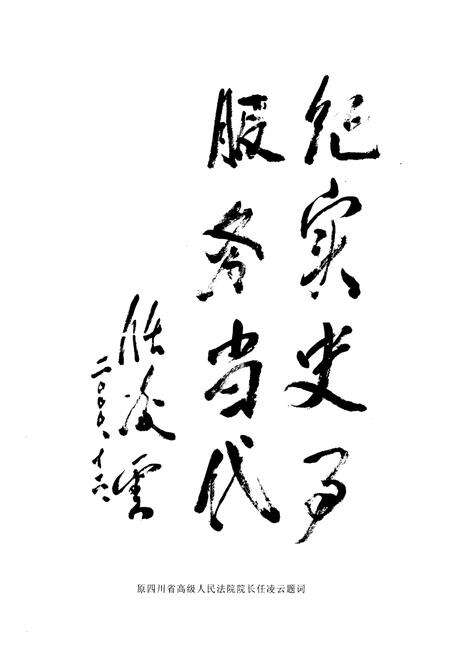 纪实史事
服务当代
任凌云
二〇〇〇、十、六、
原四川省高级人民法院院长任凌云题词